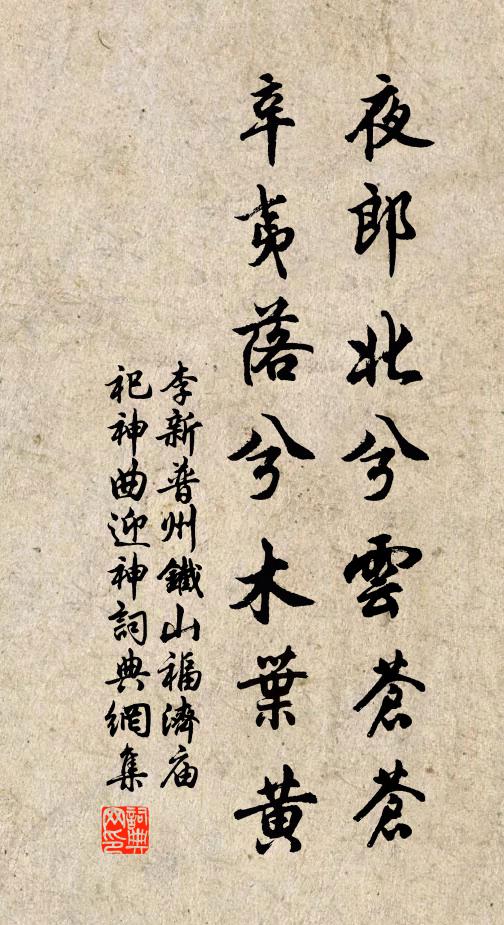 夜郎北兮雲蒼蒼
辛夷落兮木葉黃
李新普州鐵山福濟庙
祀神曲迎神詞典網集
詞典
网印